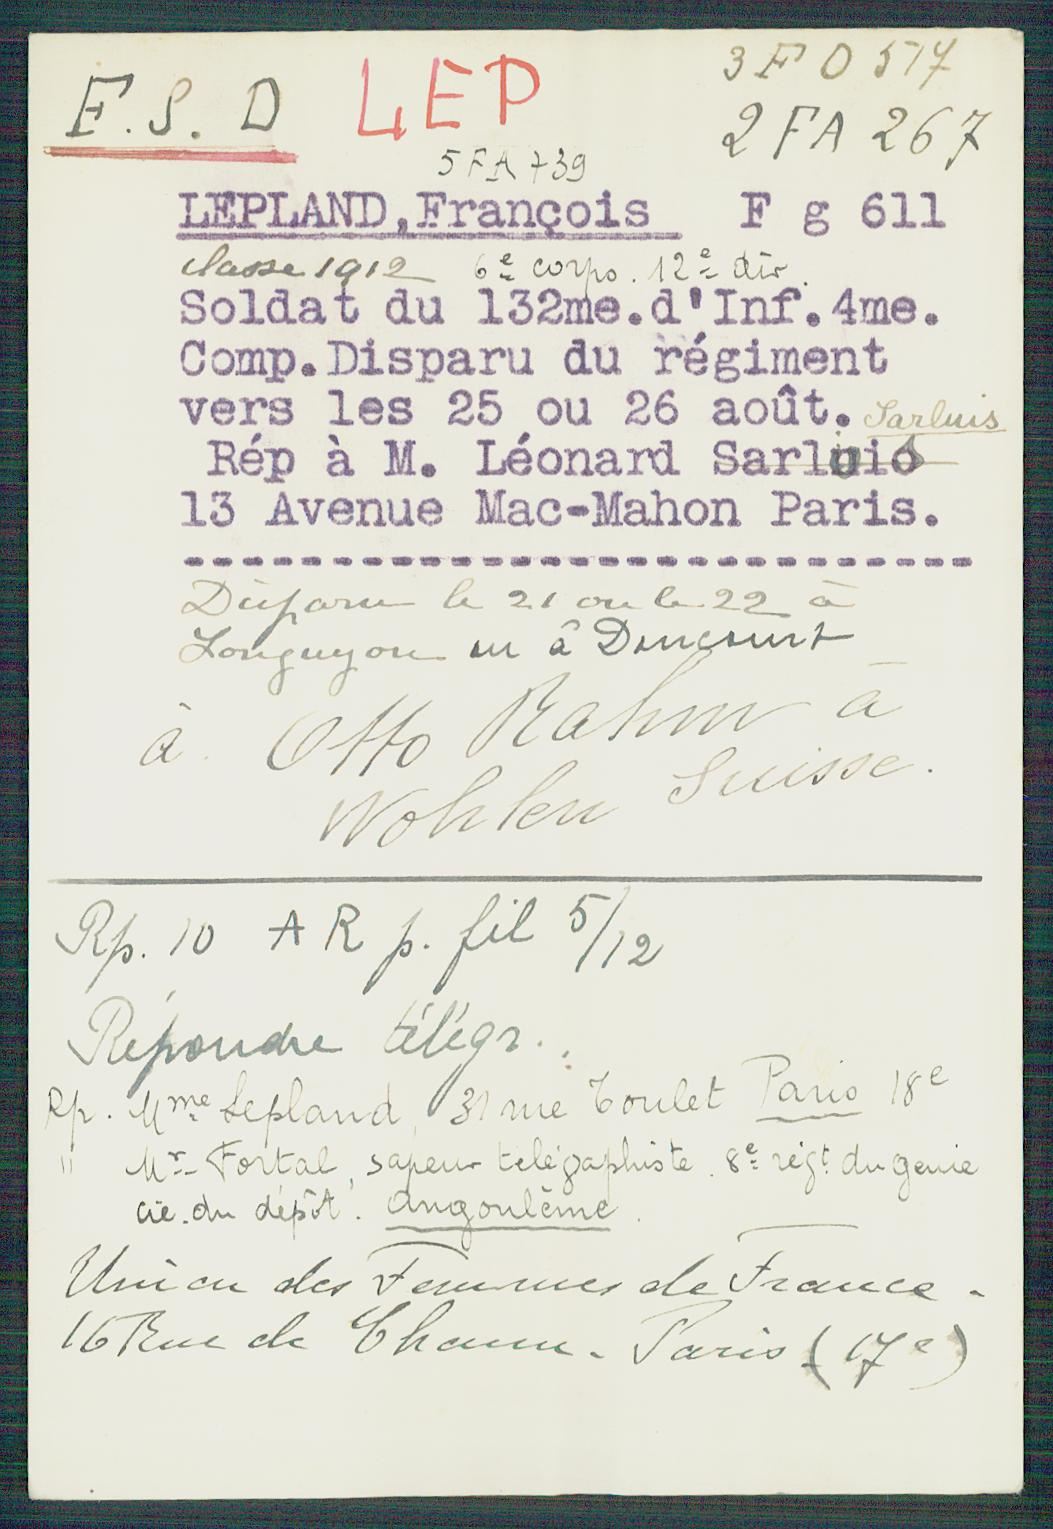 3 F O 517
F. S. D LEP
2 FA 267
5 FA 739
LEPLAND, François F g 611
classe 1912 6e corps. 12e div.
Soldat du 132me.d'Inf.4me.
Comp.Disparu du régiment
vers les 25 ou 26 août. Sarluis
Rép à M. Léonard Sarluis
13 Avenue Mac-Mahon Paris.
Disparu le 21 ou le 22 à
Longuyon ou à Doncourt
à Otto Rahm à
Wohlen Suisse.
Rp. 10 A R p. fil 5/12
Répondre télégr.
Rp. Mme Lepland, 31 rue Toulet Paris 18e
" Mr Fortal, sapeur télégaphiste 8e régt du genie
cie. du dépôt. Angoulême.
Union des Femmes de France -
16 Rue de - Paris (17e)